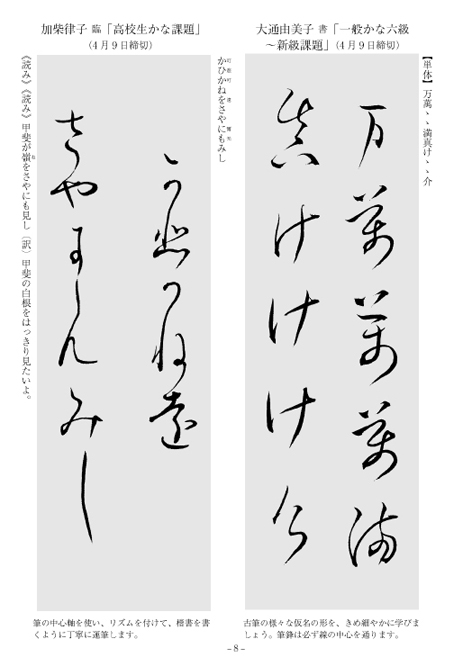 大通由美子 書「一般かな六級
～新級課題」（4月9日締切）
【単体】万萬ゝゝ満真けゝゝ介
万萬萬萬満
真けけけ介
古筆の様々な仮名の形を、きめ細やかに学びま
しょう。筆鋒は必ず線の中心を通ります。
加柴律子 臨「高校生かな課題」
（4月9日締切）
かひかねをさやにもみし
可悲可遠
可悲可ね遠
さやにもみし
《読み》《読み》甲斐が嶺をさやにも見し〔訳〕甲斐の白根をはっきり見たいよ。
ね
筆の中心軸を使い、リズムを付けて、楷書を書
くように丁寧に運筆します。
- 8 -